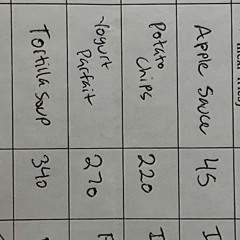 Apple Sauce 45
Potato
Chips 220
Yogurt
Parfait 270
Tortilla Soup 340